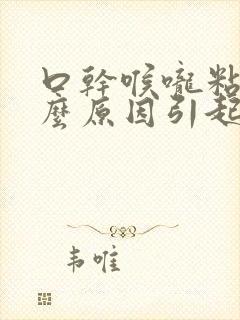 口幹喉嚨粘
麼原因引起
韦唯